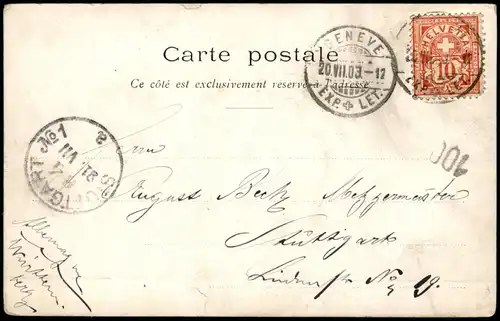 Carte postale
Ce côté est exclusivement réservé à l'adresse
GENEVE
20.VII.03.-12
EXP. LET.
HELVETIA
10
STUTTGART No 1
21 VII
100
Herrn
August Beck Metzgermeister
Stuttgart
Lindenstr No 19.
Allemagne
Württem
berg